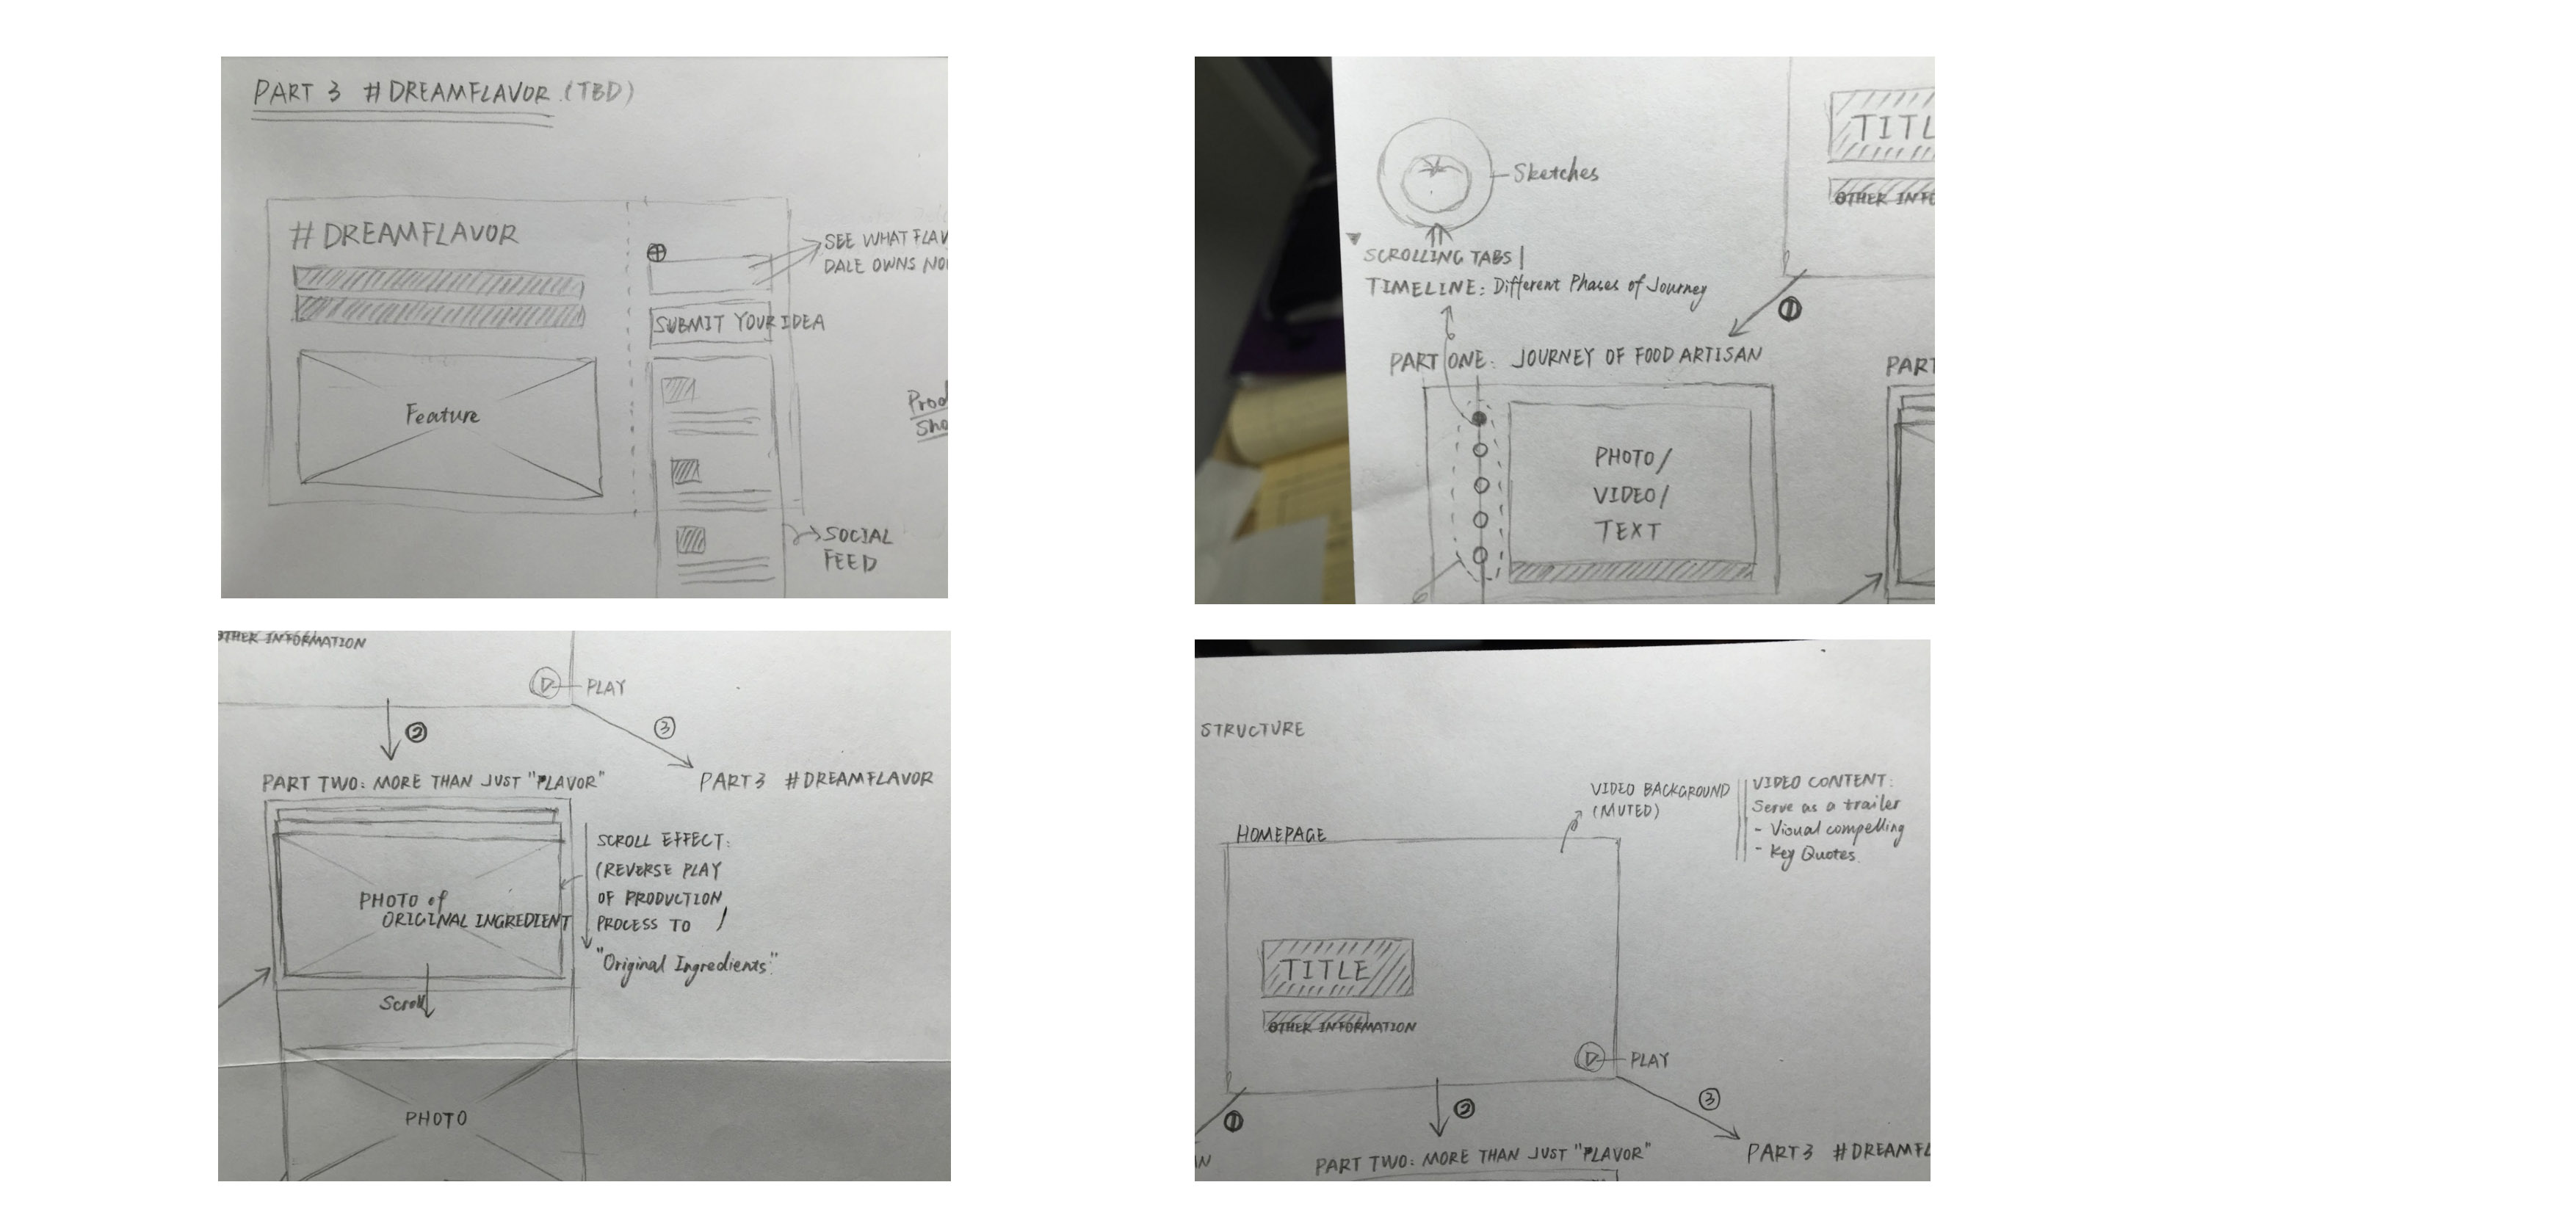 PART 3 #DREAMFLAVOR (TBD)
#DREAMFLAVOR
SEE WHAT FLAV
DALE OWNS NO
SUBMIT YOUR IDEA
Feature
Prod
Sho
SOCIAL
FEED
TITL
OTHER INFO
Sketches
SCROLLING TABS |
TIMELINE: Different Phases of Journey
①
PART ONE: JOURNEY OF FOOD ARTISAN
PART
PHOTO/
VIDEO/
TEXT
OTHER INFORMATION
PLAY
②
③
PART TWO: MORE THAN JUST "FLAVOR"
PART3 #DREAMFLAVOR
SCROLL EFFECT:
(REVERSE PLAY
OF PRODUCTION
PROCESS TO )
"Original Ingredients"
PHOTO of
ORIGINAL INGREDIENT
Scroll
PHOTO
STRUCTURE
VIDEO BACKGROUND
(MUTED)
VIDEO CONTENT:
Serve as a trailer
- Visual compelling
- Key Quotes.
HOMEPAGE
TITLE
OTHER INFORMATION
PLAY
①
②
③
PART TWO: MORE THAN JUST "FLAVOR"
PART3 #DREAMFL